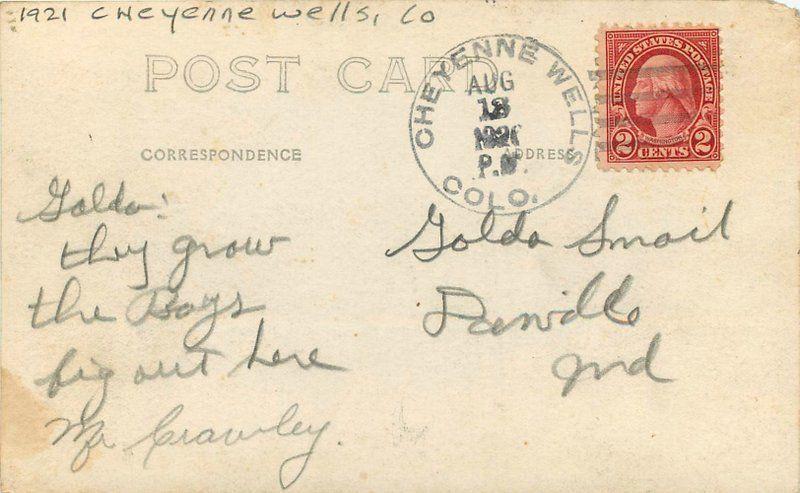 1921 Cheyenne Wells, Co
POST CARD
CHEYENNE WELLS
AUG
13
P.M.
COLO.
UNITED STATES POSTAGE
WASHINGTON
2 CENTS 2
CORRESPONDENCE
ADDRESS
Golda:
they grow
the Boys
big out here
Mr Crawley.
Golda Smail
Danville
Ind